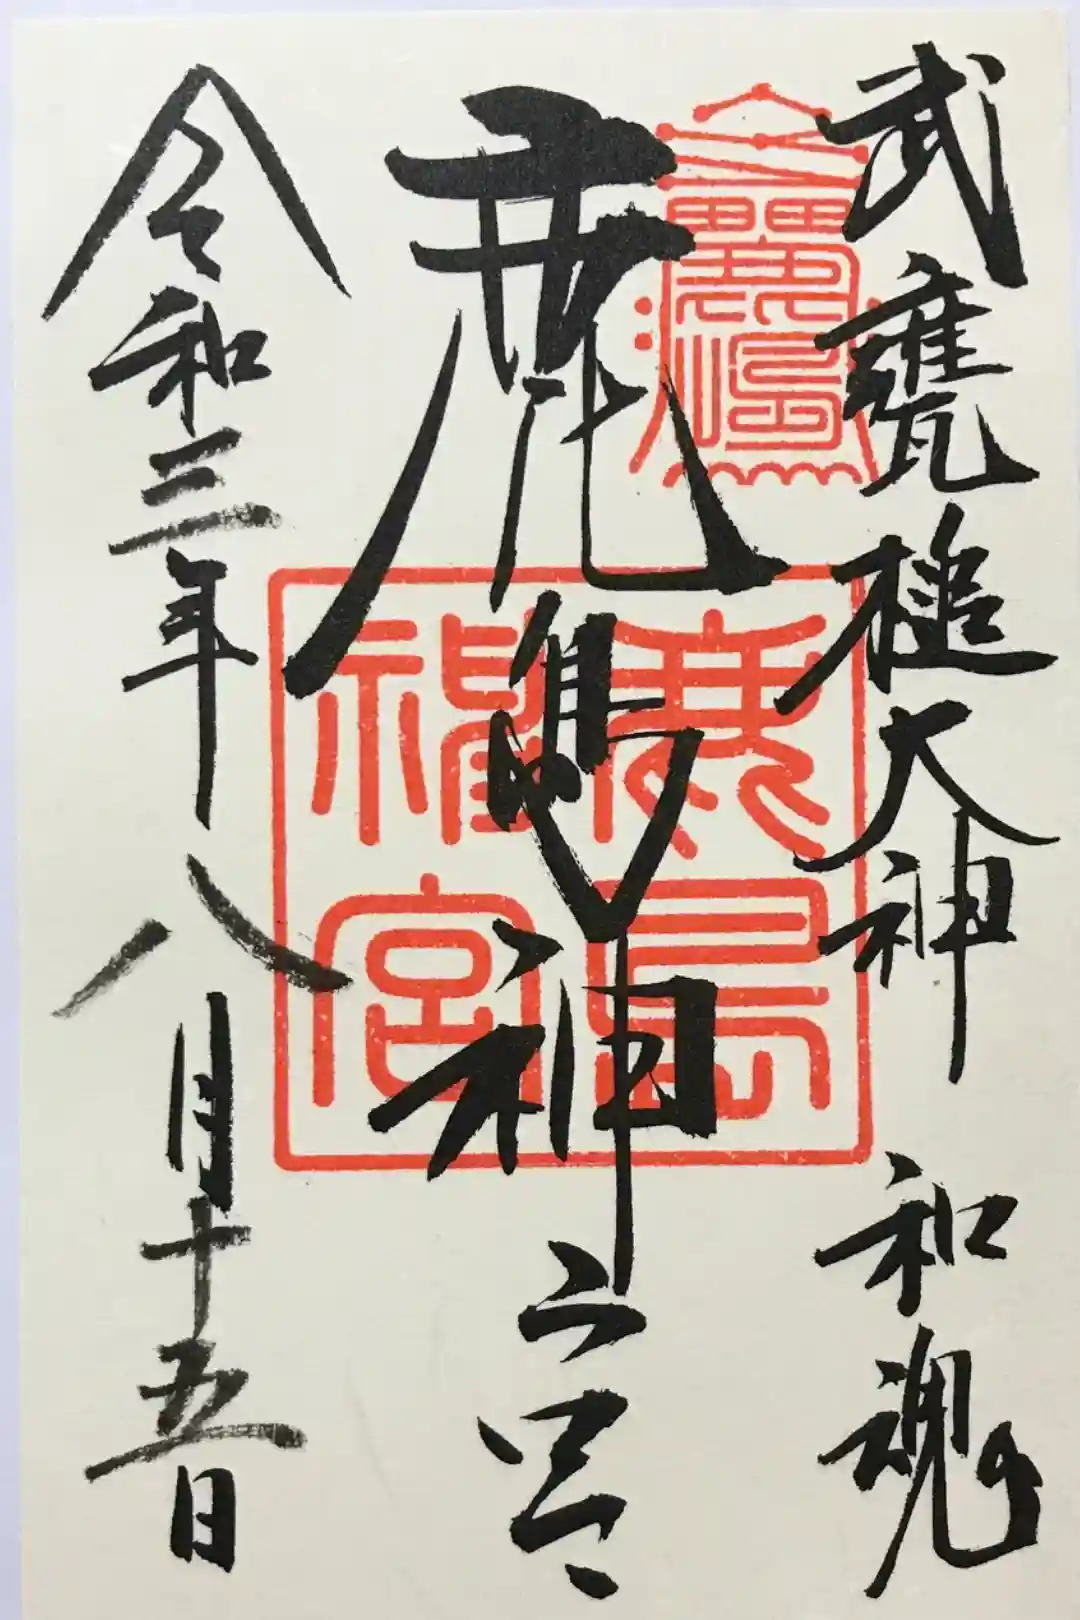 武甕槌大神 和魂
鹿島神宮
鹿島
神宮
令和三年八月十五日